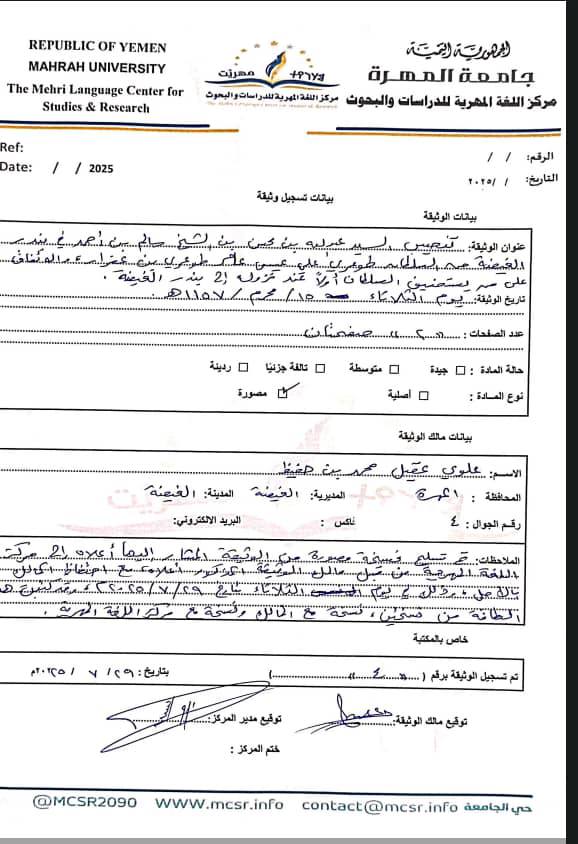 REPUBLIC OF YEMEN
MAHRAH UNIVERSITY
The Mehri Language Center for
Studies & Research
مهريت
مركز اللغة المهرية للدراسات والبحوث
الجمهورية اليمنية
جامعة المهرة
مركز اللغة المهرية للدراسات والبحوث
Ref:
Date: / / 2025
الرقم: / /
التاريخ: / /٢٠٢٥
بيانات تسجيل وثيقة
بيانات الوثيقة
عنوان الوثيقة: السيد عبدالله بن محسن بن الشيخ سالم بن أحمد في بندر
الغيضة السلطان طوعري على عيسى طوعري بن عفرار
على من السلطان أولاً عند نزوله إلى بندر الغيضة.
تاريخ الوثيقة: يوم الثلاثاء ١٥/ محرم / ١١٥٧هـ
عدد الصفحات: «٢» صفحتان
حالة المادة : جيدة متوسطة تالفة جزئيا رديئة
نوع المادة : أصلية مصورة
بيانات مالك الوثيقة
الاسم: علوي عقيل محمد بن حفيظ
المحافظة : المهرة المديرية: الغيضة المدينة: الغيضة
رقم الجوال: ٤ فاكس : البريد الالكتروني:
الملاحظات: تم تسليم نسخة مصورة من الوثيقة المشار إليها أعلاه إلى مركز
اللغة المهرية من قبل مالك الوثيقة المذكور أعلاه مع احتفاظ المالك
بالأصل، وذلك في يوم الثلاثاء بتاريخ ٢٩/٧/٢٠٢٥م
من نسختين، نسخة مع المالك ونسخة مع مركز اللغة المهرية.
خاص بالمكتبة
تم تسجيل الوثيقة برقم ( «٤» ) بتاريخ: ٢٩/ ٧ / ٢٠٢٥م
توقيع مالك الوثيقة: توقيع مدير المركز:
ختم المركز :
@MCSR2090 WWW.mcsr.info contact@mcsr.info حي الجامعة